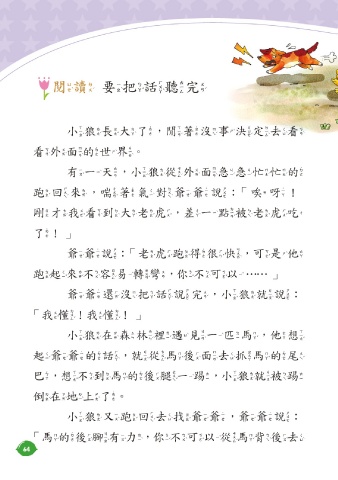 閱讀 要把話聽完
小狼長大了，閒著沒事決定去看
看外面的世界。
有一天，小狼從外面急急忙忙的
跑回來，喘著氣對爺爺說：「唉呀！
剛才我看到大老虎，差一點被老虎吃
了！」
爺爺說：「老虎跑得很快，可是他
跑起來不容易轉彎，你不可以……」
爺爺還沒把話說完，小狼就說：
「我懂！我懂！」
小狼在森林裡遇見一匹馬，他想
起爺爺的話，就從馬後面去抓馬的尾
巴，想不到馬的後腿一踢，小狼就被踢
倒在地上了。
小狼又跑回去找爺爺，爺爺說：
「馬的後腳有力，你不可以從馬背後去
64